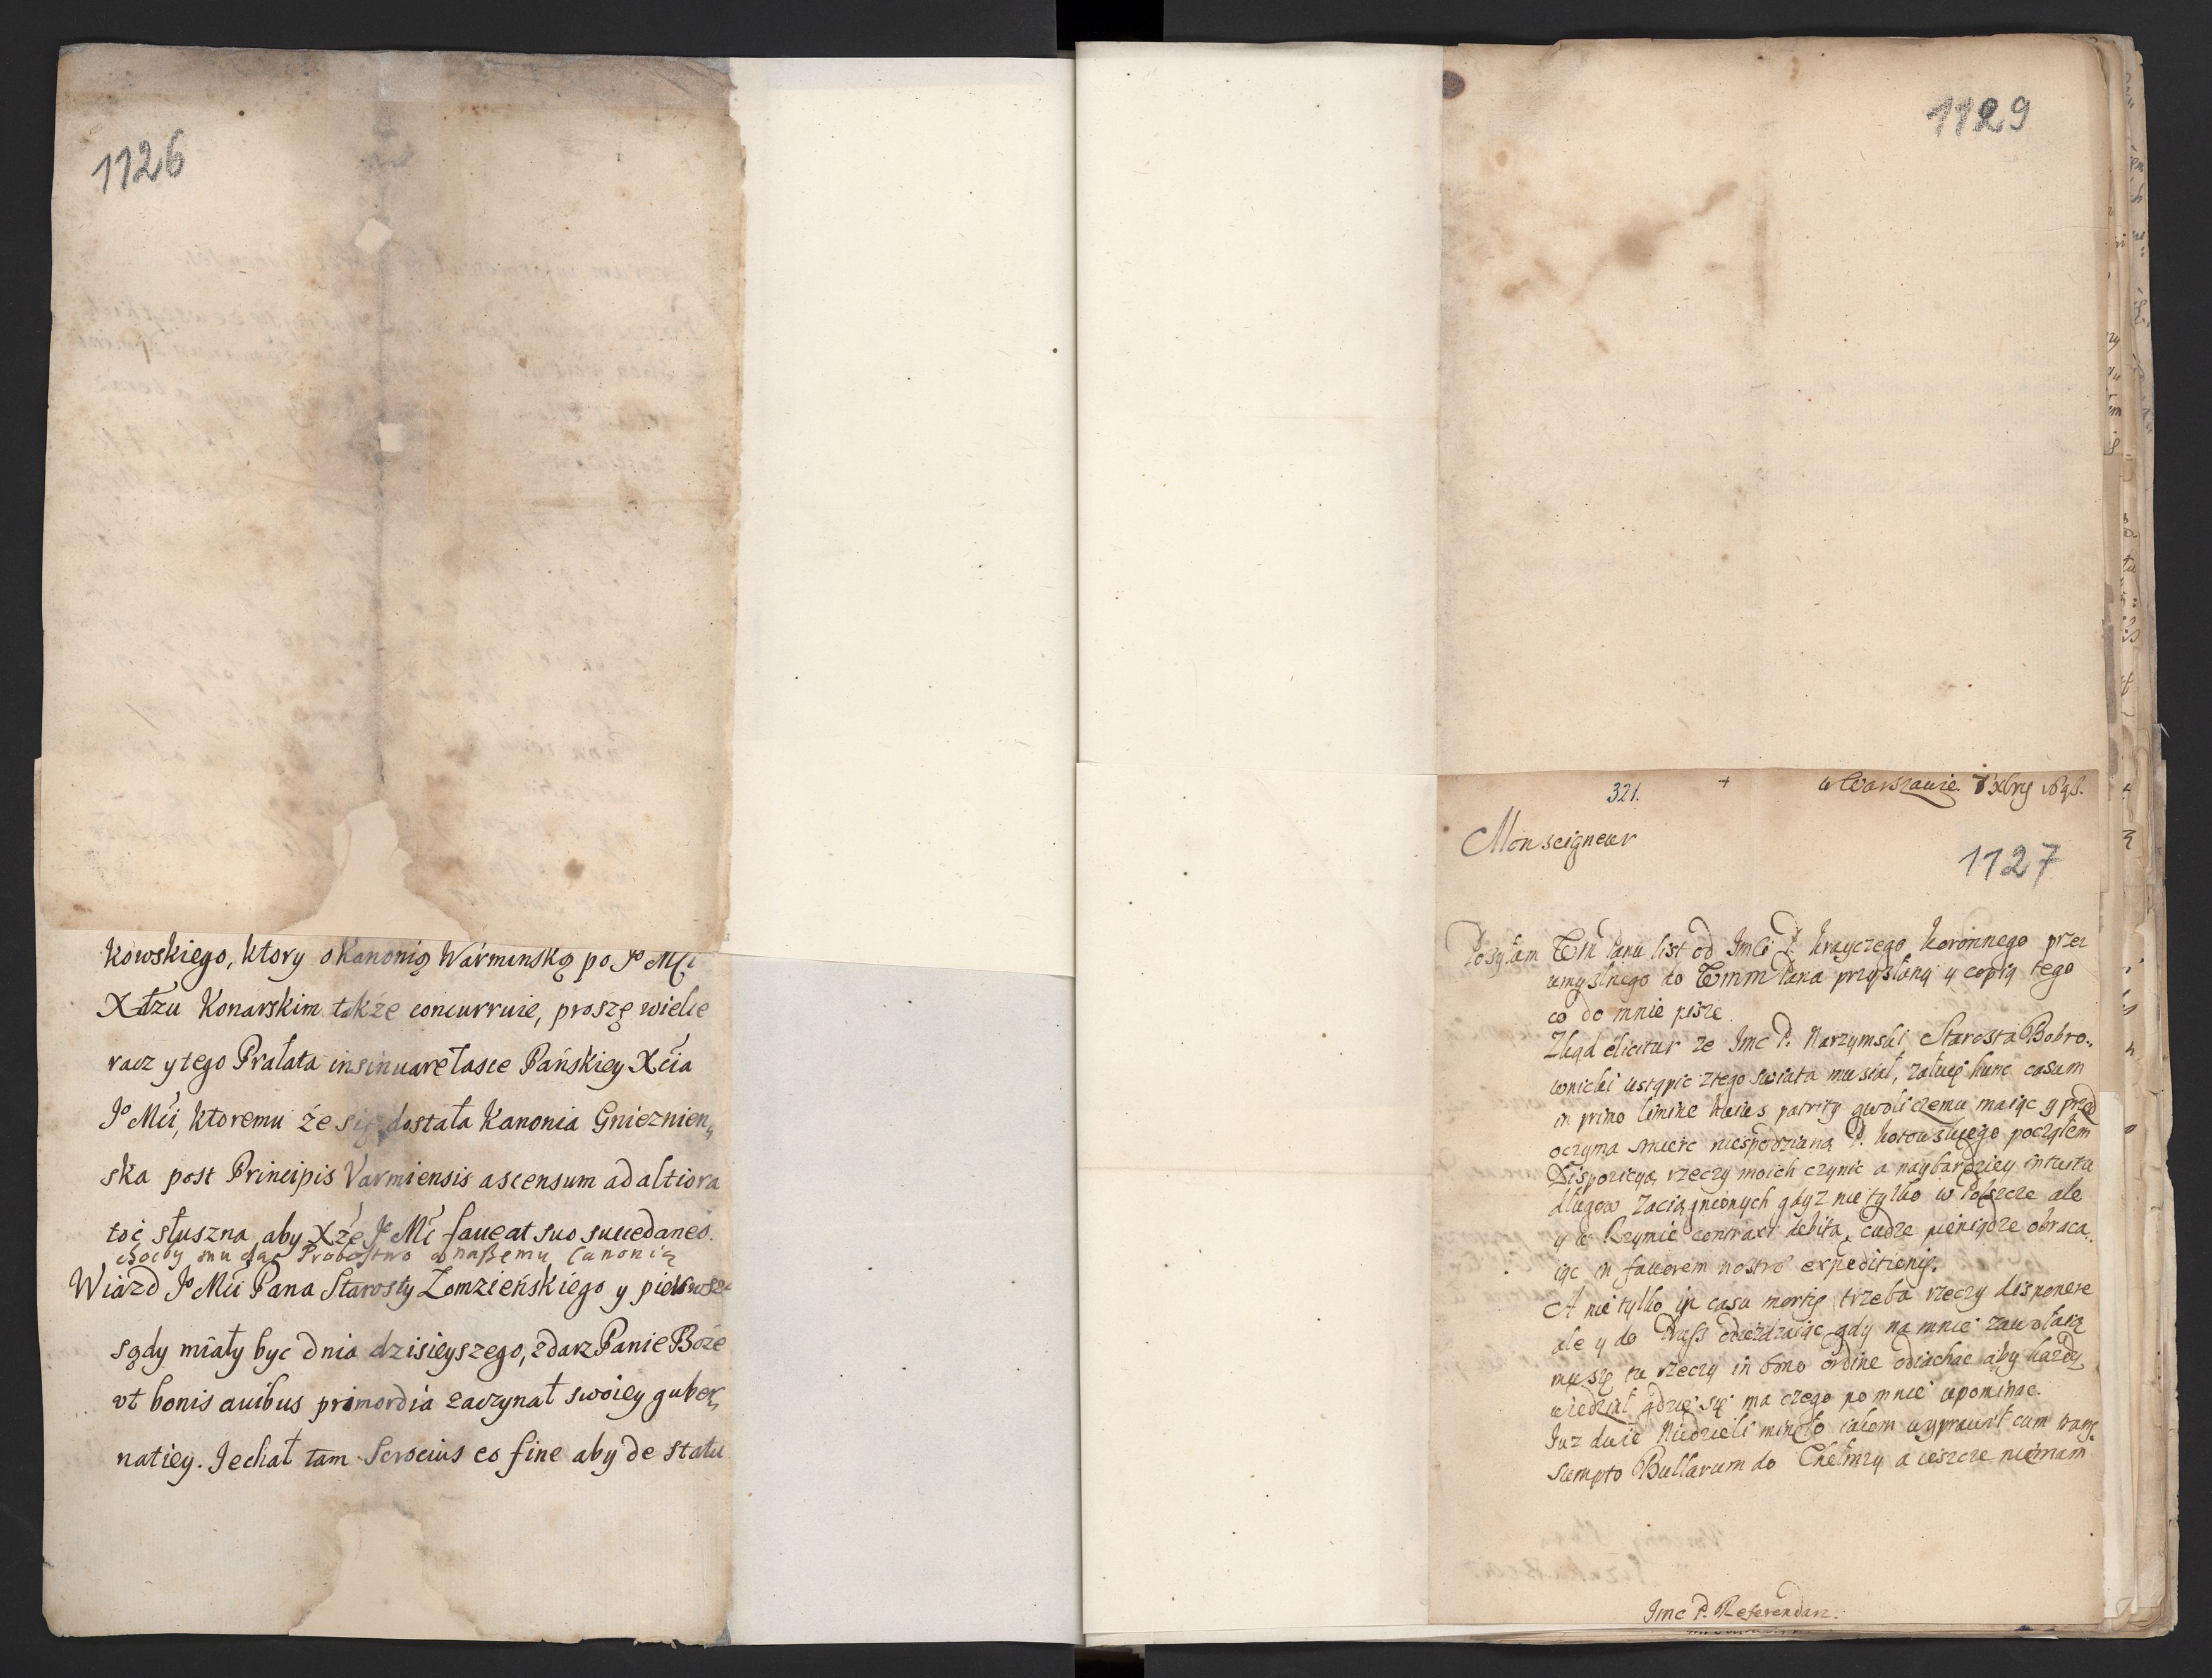 1126
kowskiego, ktory o Kanonią Warminską po Jo Mci
Xdzu Konarskim także concurruie, proszę wielce
racz y tego Prałata insinuare łasce Pańskiey Xcia
Jo Mci, ktoremu że się dostała Kanonia Gnieznien„
ska post Principis Varmiensis ascensum ad altiora
toć słuszna, aby Xże Jo Mć faveat suo succedaneo.
choćby mu dać Probostwo a naszemu Canonią
Wiazd Jo Mci Pana Starosty Łomzieńskiego y pierwsze
sądy miały byc dnia dzisieyszego, zdarz Panie Boże
vt bonis avibus primordia zaczynał swoiey guber„
natiey. Jechał tam Scrocius eo fine aby de statu
1129
321. + w Warszawie. 7 Xbrỹ 1698.
Monseigneur
1127
Posyłam Wm Panu list od Jmci P. Krayczego koronnego przez
umyslnego do Wmm Pana przysłany y copią tego
co do mnie pisze.
Zkąd elicitur ze Jmc P. Narzymski Starosta Bobro„
wnicki ustąpic z tego swiata musiał, załuię hunc casum
in primo limine huius patriy gwoli czemu maiąc y przed
oczyma smierc niespodzianą P. Kotowskiego począłem
Dispozicyą rzeczy moich czynic a naybardziey intuitu
długow zaciągnionych gdyz nie tylko w Polszcze ale
y w Rzymie contraxi debita, cudze pieniądze obraca„
iąc in favorem nostrę expeditionỹ.
A nie tylko in casu mortis trzeba rzeczy disponere
ale y do Pruss odiezdzaiąc gdy na mnie zawołaią
muszę tu rzeczy in bono ordine odiachac aby kazdy
wiedział gdzie się ma czego po mnie upominac.
Juz dwie Niedzieli mineło iakem wyprawił cum trans„
sumpto Bullarum do Chełmzy a ieszcze nie mam
Jmc P. Referendarz.